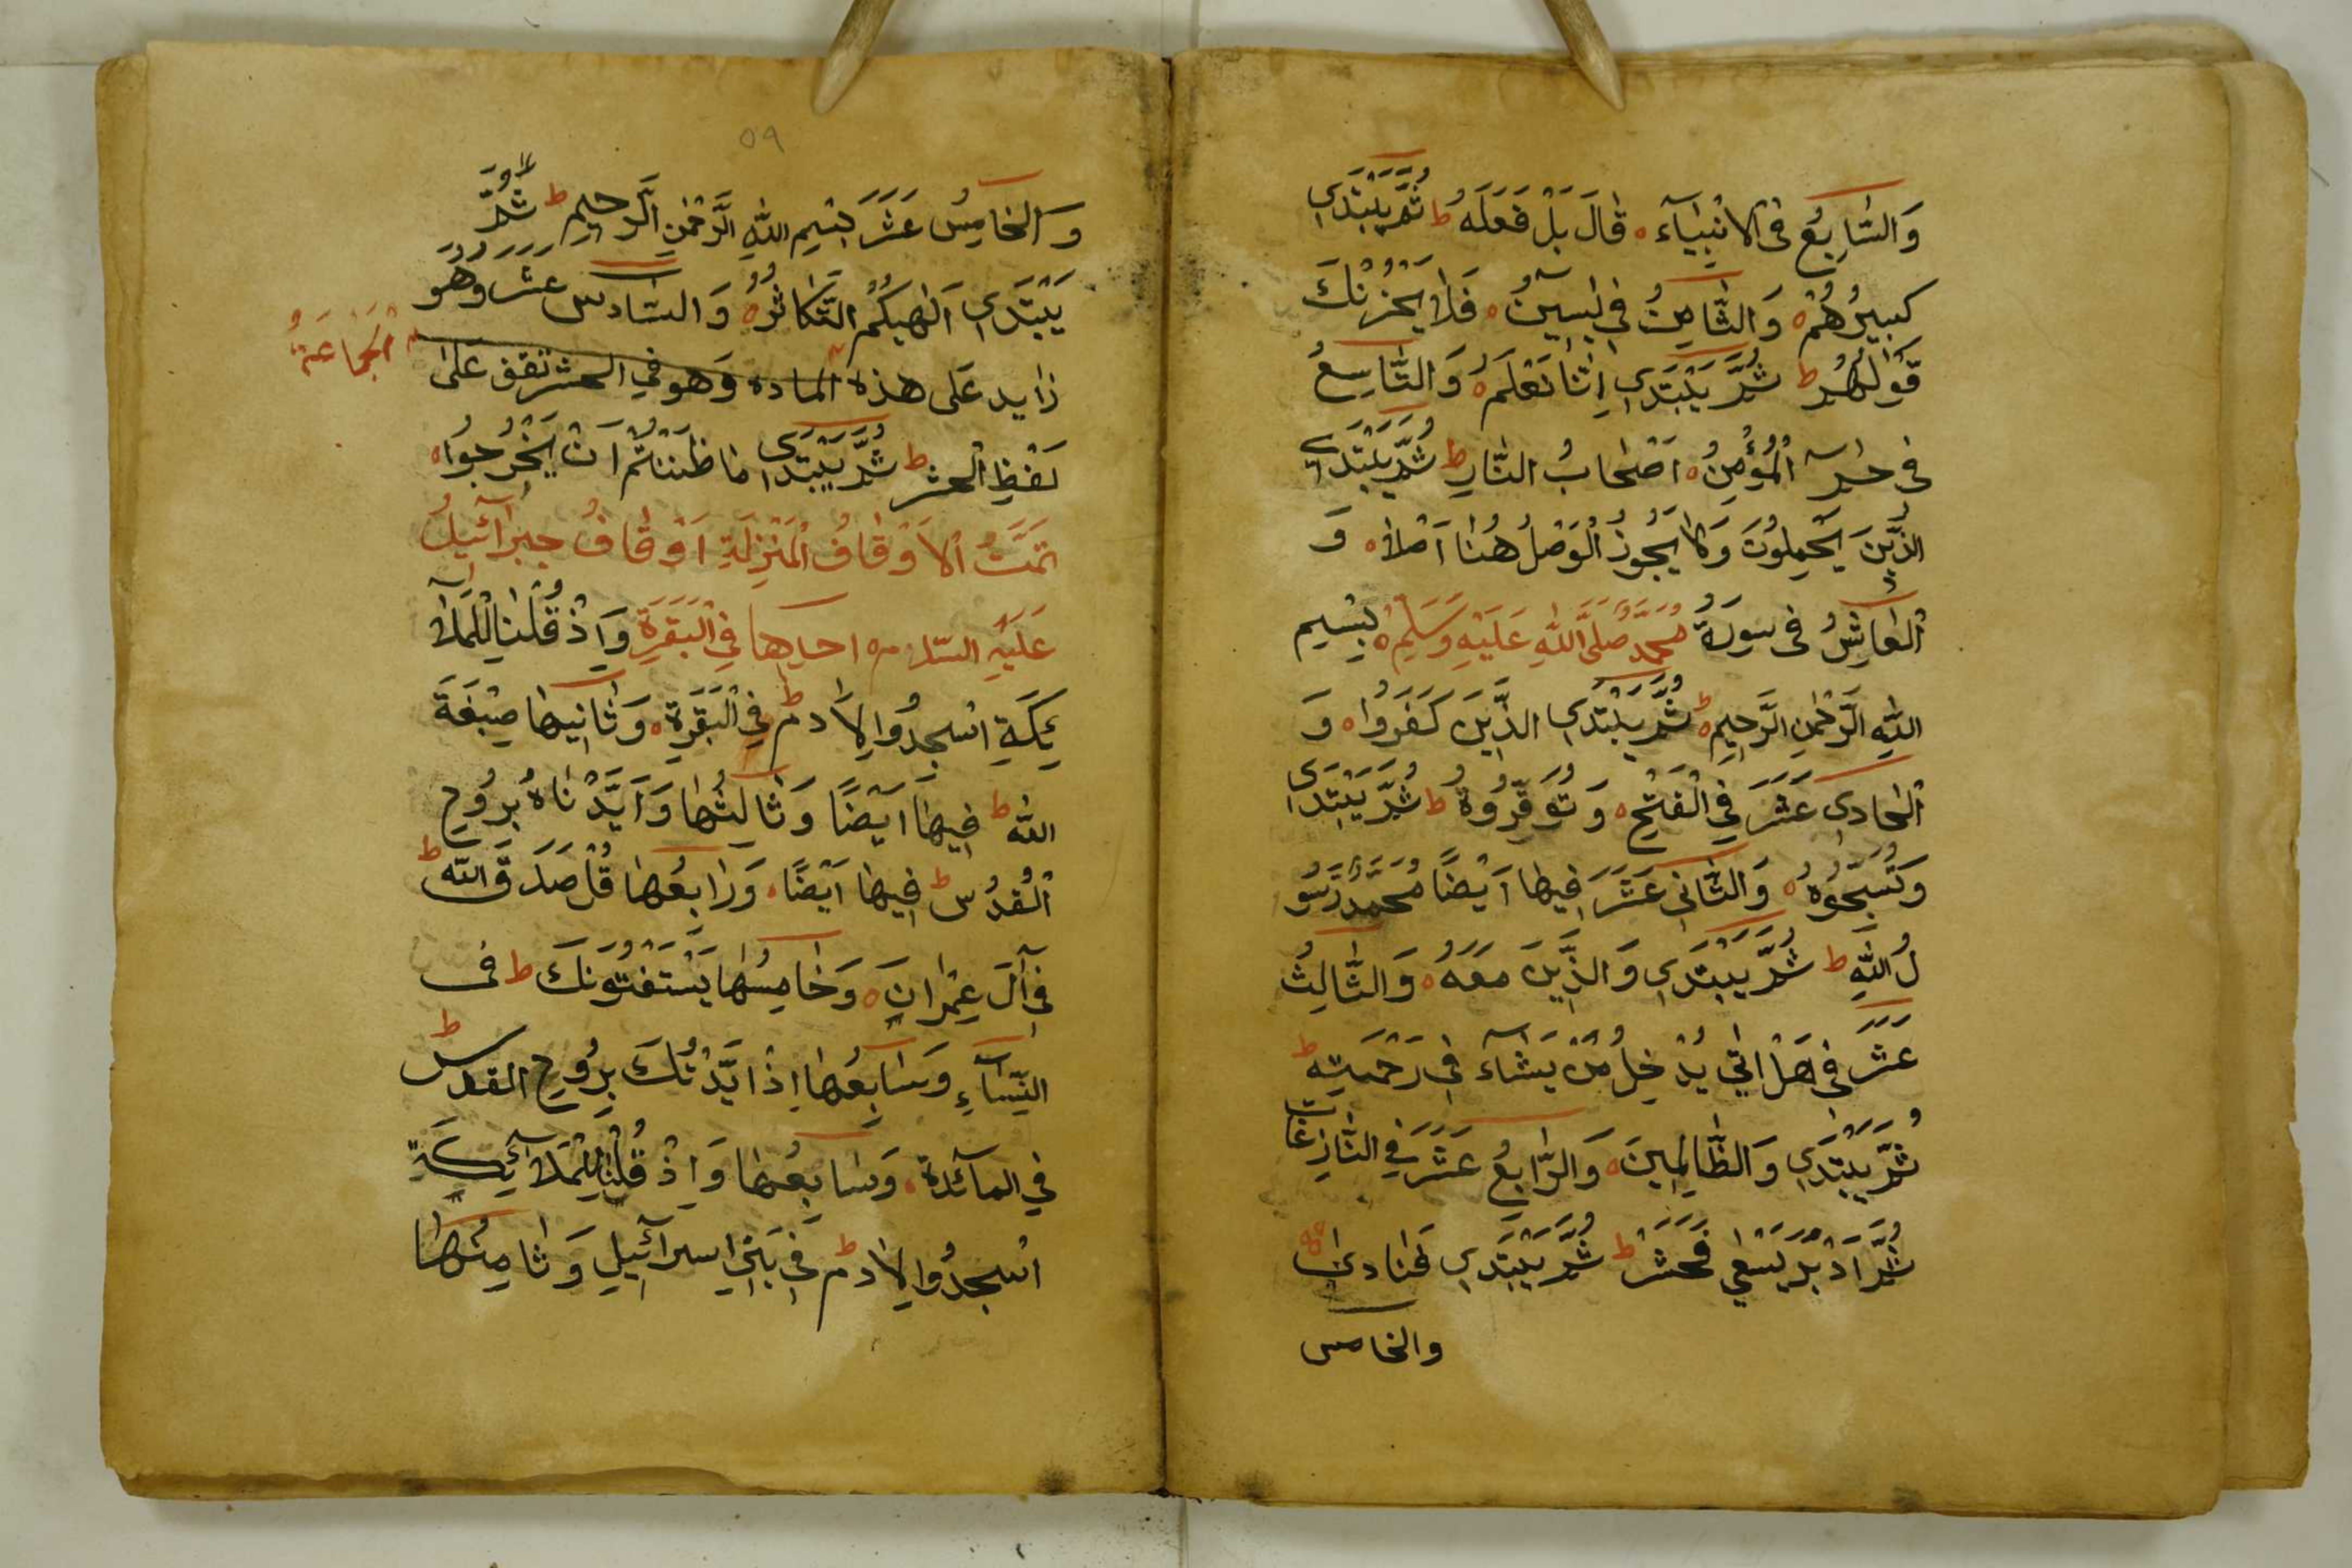 وَالسَّابِعُ فِي الْاَنْبِيَآءِ ه قَالَ بَلْ فَعَلَهُ ط ثُمَّ يَبْتَدِي
كَبِيرُهُمْ ه وَالثَّامِنُ فِي يٰسِينُ ه فَلَا يَحْزُنْكَ
قَوْلُهُمْ ط ثُمَّ يَبْتَدِي اِنَّا نَعْلَمُ ه وَالتَّاسِعُ
فِي حٰمٓ الْمُؤْمِنُ ه اَصْحَابُ النَّارِ ط ثُمَّ يَبْتَدِي
الَّذِينَ يَحْمِلُونَ وَلَا يَجُوزُ الْوَصْلُ هُنَا اَصْلًا ه وَ
الْعَاشِرُ فِي سورَةُ مُحَمَّدٍ صَلَّى اللّٰهُ عَلَيْهِ وَسَلَّمَ ه بِسْيمِ
اللّٰهِ الرَّحْمٰنِ الرَّحِيمِ ط ثُمَّ يَبْتَدِي الَّذِينَ كَفَرُوا ه وَ
الْحَادِي عَشَرَ فِي الْفَتْحِ ه وَتُوَقِّرُوهُ ط ثُمَّ يَبْتَدِي
وَتُسَبِّحُوهُ ه وَالثَّانِي عَشَرَ فِيهَا اَيْضًا مُحَمَّدٌ رَسُو
لُ اللّٰهِ ط ثُمَّ يَبْتَدِي وَالَّذِينَ مَعَهُ ه وَالثَّالِثُ
عَشَرَ فِي هَلْ اَتٰي يُدْخِلُ مَنْ يَشَآءُ فِي رَحْمَتِهِ ط
ثُمَّ يَبْتَدِي وَالظَّالِمِينَ ه وَالرَّابِعُ عَشَرَ فِي النَّازِعَات
ثُمَّ اَدْبَرَ يَسْعٰي فَحَشَرَ ط ثُمَّ يَبْتَدِي فَنَادٰى
والخامس
٥٩
وَالْخَامِسُ عَشَرَ بِسْيمِ اللّٰهِ الرَّحْمٰنِ الرَّحِيمِ ط ثُمَّ
يَبْتَدِي اَلْهٰيكُمُ التَّكَاثُرُ ه وَالسَّادِس عَشَرَ وَهُوَ
زايد عَلى هذه المادة وَهو في الحشر تقف عَلى
الْجَمَاعَةُ
لَفْظِ الْحشر ط ثُمَّ يَبْتَدِي مَا ظَنَنْتُمْ اَنْ يَخْرُجُوا ه
تَمَّتْ الْاَوْقَافُ الْمَنْزِلَةِ اَوْقَافُ جِبْرَآئِيلُ
عَلَيْهِ السَّلام ه احديها فِي الْبَقَرَةِ وَاِذْ قُلْنَا لِلْمَلَآ
ئِكَةِ اسْجُدُوا لِاٰدَمَ ط فِي الْبَقَرَةِ ه وَثَانِيهَا صِبْغَةَ
اللّٰه ط فِيهَا اَيْضًا وَثَالِثُهَا وَاَيَّدْنَاهُ بِرُوحِ
الْقُدُسِ ط فِيهَا اَيْضًا ه وَرَابِعُهَا قُلْ صَدَقَ اللّٰه ط
فِي آلَ عِمْرَانِ ه وَخَامِسُهَا يَسْتَفْتُونَكَ ط فى
النِّسَآءِ وَسَابِعُهَا اِذْ اَيَّدْتُكَ بِرُوحِ القدس ط
فِي المآئدة ه وَسَابِعُهَا وَاِذْ قُلْنَا لِلْمَلَآئِكَةِ
اسْجُدُوا لِاٰدَمَ ط فِي بَنِي اِسْرَآئِيلَ وَثَامِنُهَا